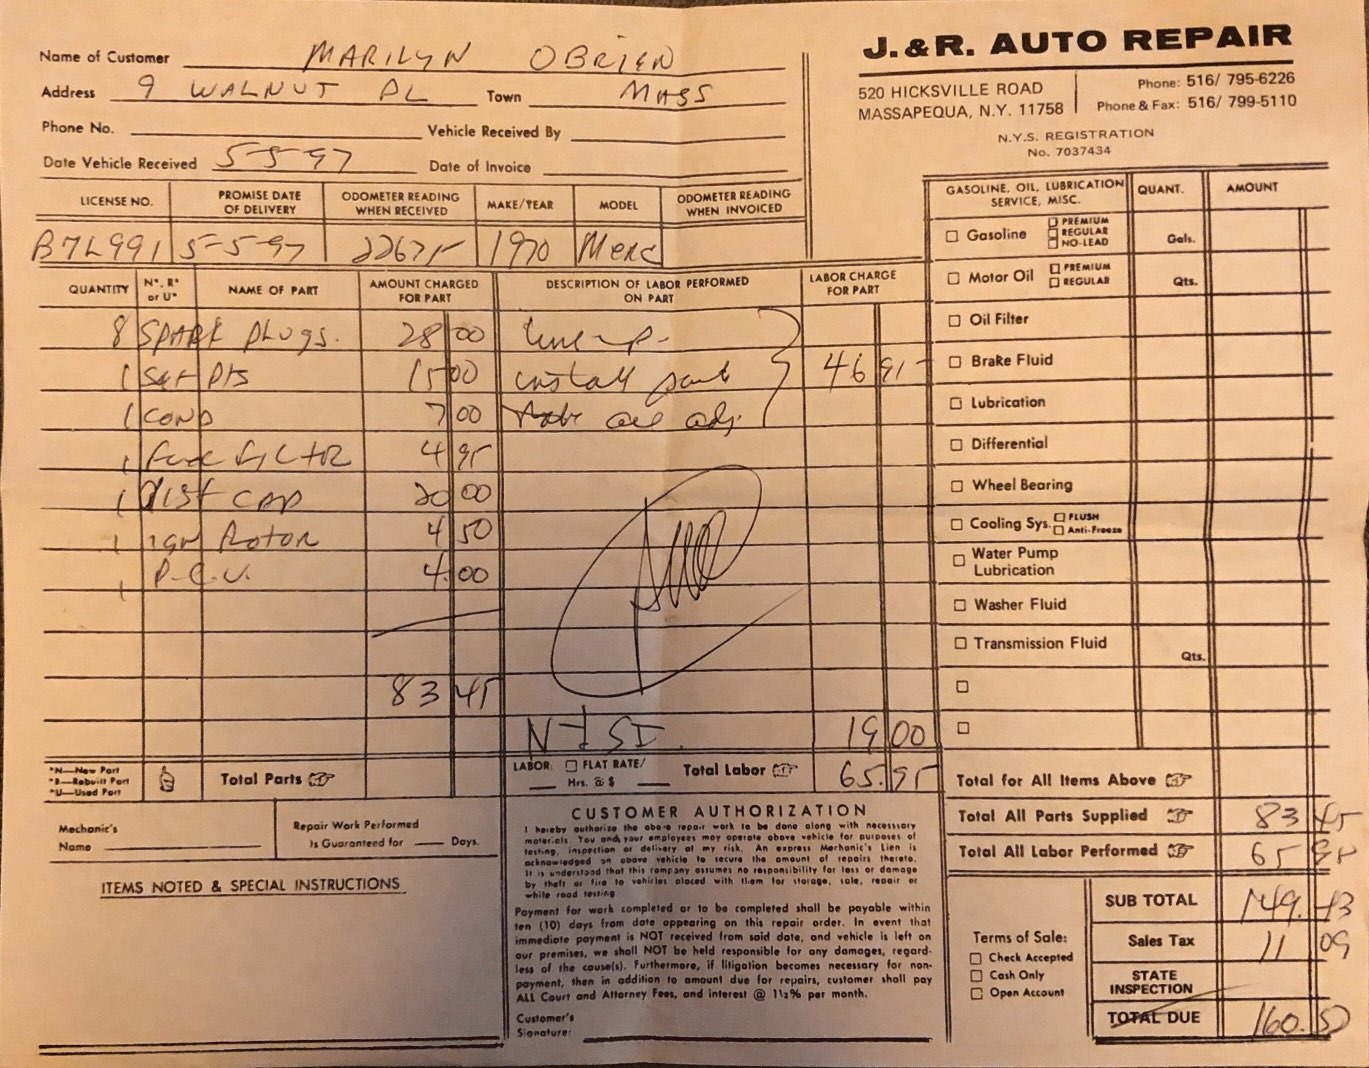 Name of Customer MARILYN OBRIEN
Address 9 WALNUT PL Town MASS
Phone No. Vehicle Received By
Date Vehicle Received 5-5-97 Date of Invoice
J.&R. AUTO REPAIR
520 HICKSVILLE ROAD
MASSAPEQUA, N.Y. 11758
Phone: 516/ 795-6226
Phone & Fax: 516/ 799-5110
N.Y.S. REGISTRATION
No. 7037434
LICENSE NO. PROMISE DATE OF DELIVERY ODOMETER READING WHEN RECEIVED MAKE/YEAR MODEL ODOMETER READING WHEN INVOICED
B7L991 5-5-97 22675 1970 Merc
QUANTITY N*, R* or U* NAME OF PART AMOUNT CHARGED FOR PART DESCRIPTION OF LABOR PERFORMED ON PART LABOR CHARGE FOR PART
8 SPARK PLUGS. 28 00 tune-up-
1 Set PTS 15 00 install part 46 95
1 COND 7 00 all adj.
1 Fuel FILTOR 4 95
1 DIST CAP 20 00
1 IGN ROTOR 4 50
1 P.C.V. 4.00
83 45
19 00
*N—New Part
*R—Rebuilt Part
*U—Used Part
Total Parts
LABOR: FLAT RATE/
Hrs. @ $
Total Labor 65.95
Mechanic's
Name
Repair Work Performed
Is Guaranteed for Days.
ITEMS NOTED & SPECIAL INSTRUCTIONS
CUSTOMER AUTHORIZATION
I hereby authorize the above repair work to be done along with necessary
materials. You and your employees may operate above vehicle for purposes of
testing, inspection or delivery at my risk. An express Mechanic's Lien is
acknowledged on above vehicle to secure the amount of repairs thereto.
It is understood that this company assumes no responsibility for loss or damage
by theft or fire to vehicles placed with them for storage, sale, repair or
while road testing
Payment for work completed or to be completed shall be payable within
ten (10) days from date appearing on this repair order. In event that
immediate payment is NOT received from said date, and vehicle is left on
our premises, we shall NOT be held responsible for any damages, regard-
less of the cause(s). Furthermore, if litigation becomes necessary for non-
payment, then in addition to amount due for repairs, customer shall pay
ALL Court and Attorney Fees, and interest @ 1½% per month.
Customer's
Signature:
GASOLINE, OIL, LUBRICATION SERVICE, MISC. QUANT. AMOUNT
Gasoline PREMIUM REGULAR NO-LEAD Gals.
Motor Oil PREMIUM REGULAR Qts.
Oil Filter
Brake Fluid
Lubrication
Differential
Wheel Bearing
Cooling Sys. FLUSH Anti-Freeze
Water Pump
Lubrication
Washer Fluid
Transmission Fluid Qts.
Total for All Items Above
Total All Parts Supplied 83 45
Total All Labor Performed 65 95
Terms of Sale:
Check Accepted
Cash Only
Open Account
SUB TOTAL 149.43
Sales Tax 11 09
STATE
INSPECTION
TOTAL DUE 160.52